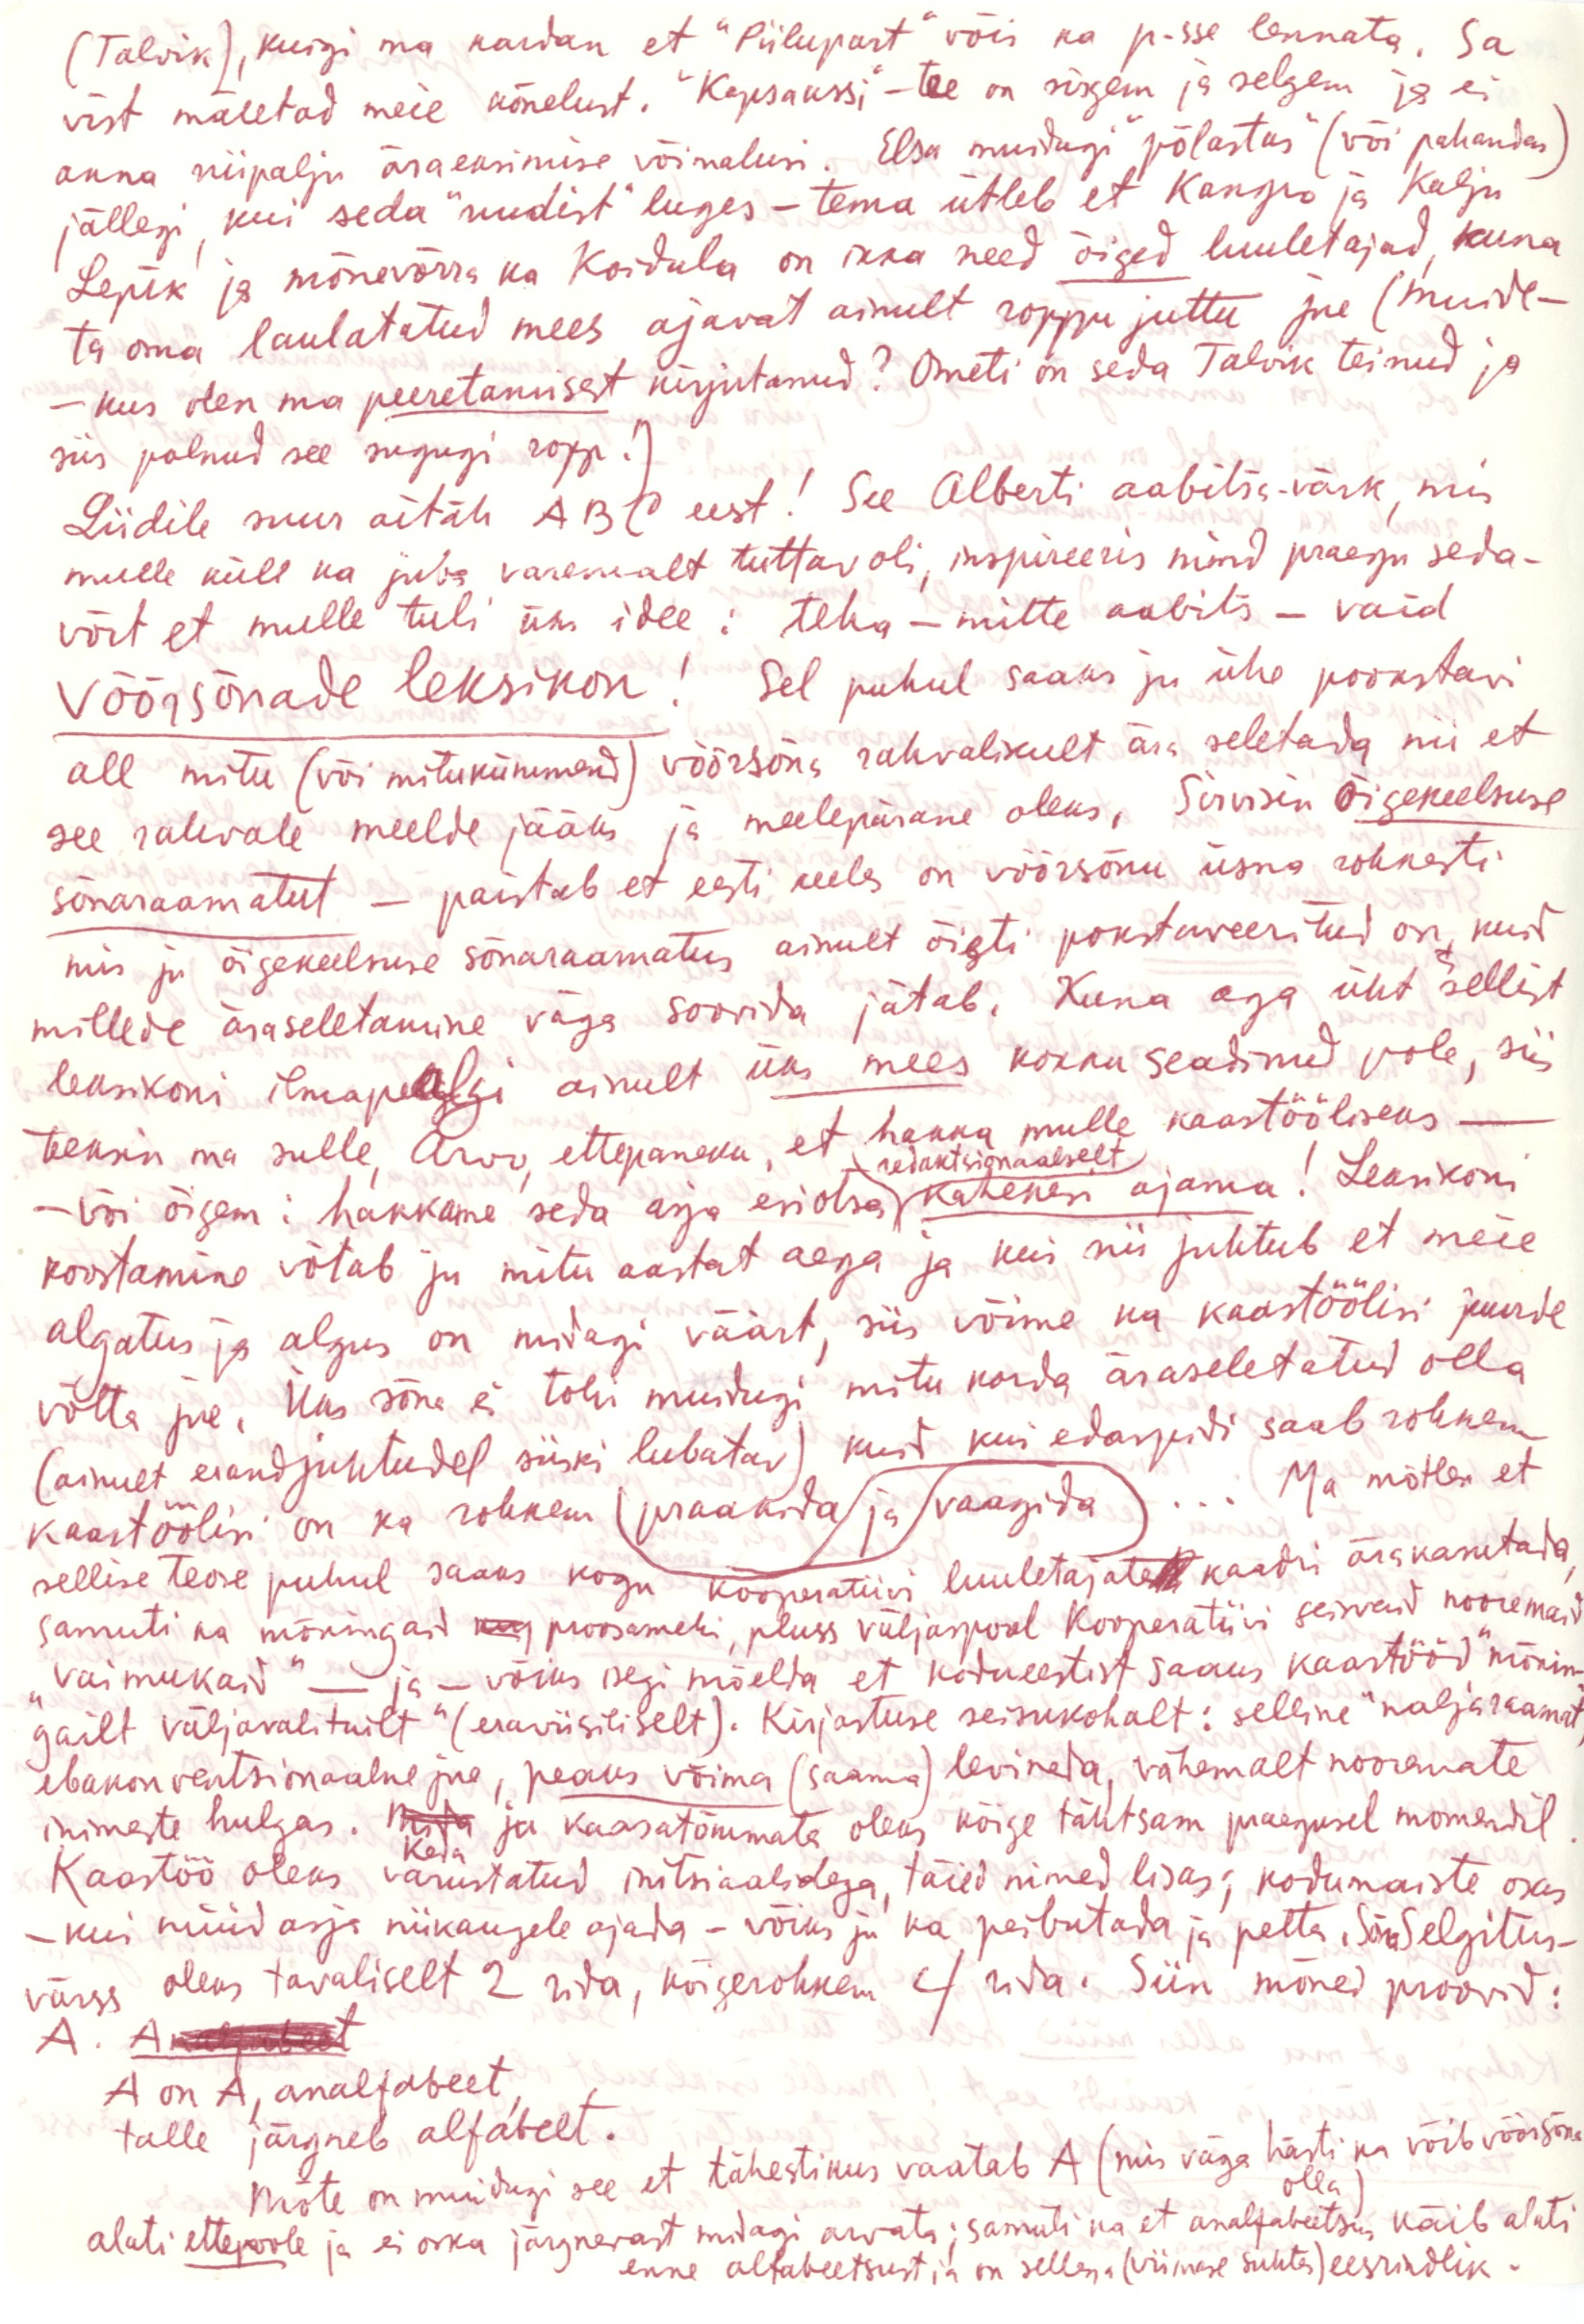 (Talvik), kuigi ma kardan et "Piilupart" võis ka p-sse lennata. Sa
vist mäletad meie kõnelust. "Kapsaussi"-tee on sirgem ja selgem ja ei
anna niipalju äraeksimise võimalusi. Elsa muidugi "põlastas" (või pahandas)
jällegi, kui seda "nudist" luges – tema ütleb et Kangro ja Kalju
Lepik ja mõnevõrra ka Koidula on ikka need õiged luuletajad, kuna
ta oma laulatatud mees ajavat ainult roppu juttu jne (muide –
– kus olen ma peeretamisest kirjutanud? Ometi on seda Talvik teinud ja
siis polnud see sugugi ropp!)
Liidile suur aitäh ABC eest! See Alberti aabitsa-värk, mis
mulle küll ka juba varemalt tuttav oli, inspireeris mind praegu seda-
võrt et mulle tuli üks idee: teha – mitte aabits – vaid
VÕÕRSÕNADE leksikon! Sel puhul saaks ju ühe pookstavi
all mitu (või mitukümmend) võõrsõna rahvalikult ära seletada nii et
see rahvale meelde jääks ja meelepärane oleks. Sirvisin Õigekeelsuse
sõnaraamatut – paistab et eesti keeles on võõrsõnu üsna rohkesti
mis ju õigekeelsuse sõnaraamatus ainult õigti pokstaveeritud on, kuid
millede äraseletamine väga soovida jätab. Kuna aga üht sellist
leksikoni ilmapealgi ainult üks mees kokku seadinud pole, siis
teeksin ma sulle, Arvo, ettepaneku, et hakka mulle kaastööliseks —
– või õigem: hakkame seda asja esiotsa (redaktsionaalselt) kahekesi ajama! Leksikoni
koostamine võtab ju mitu aastat aega ja kui nii juhtub et meie
algatus ja algus on midagi väärt, siis võime ka kaastöölisi juurde
võtta jne. Üks sõna ei tohi muidugi mitu korda äraseletatud olla
(ainult erandjuhtudel siiski lubatav) kuid kui edaspidi saab rohkem
kaastöölisi on ka rohkem praakida ja vaagida ... Ma mõtlen et
sellise teose puhul saaks kogu kooperatiivi luuletajate kaadri ärakasutada,
samuti ka mõningaid proosamehi, pluss väljaspool Kooperatiivi seisvaid nooremaid
"vaimukaid" — ja – võiks isegi mõelda et kodueestist saaks kaastööd "mõnin-
gailt väljavalituilt" (eraviisiliselt). Kirjastuse seisukohalt: selline "naljaraamat",
ebakonventsionaalne jne, peaks võima (saama) levineda, vähemalt nooremate
inimeste hulgas. Keda ju kaasatõmmata oleks kõige tähtsam praegusel momendil.
Kaastöö oleks varustatud initsiaalidega, täied nimed lisas; kodumaiste osas
– kui nüüd asja niikaugele ajada – võiks ju ka peibutada ja petta. SõnaSelgitus-
värss oleks tavaliselt 2 rida, kõigerohkem 4 rida. Siin mõned proovid:
A. Analfabeet
A on A, analfabeet,
talle järgneb alfabeet.
Mõte on muidugi see et tähestikus vaatab A (mis väga hästi ka võib võõrsõna olla)
alati ettepoole ja ei oska järgnevast midagi arvata; samuti ka et analfabeetsus käib alati
enne alfabeetsust ja on sellega (viimase suhtes) eesrindlik.